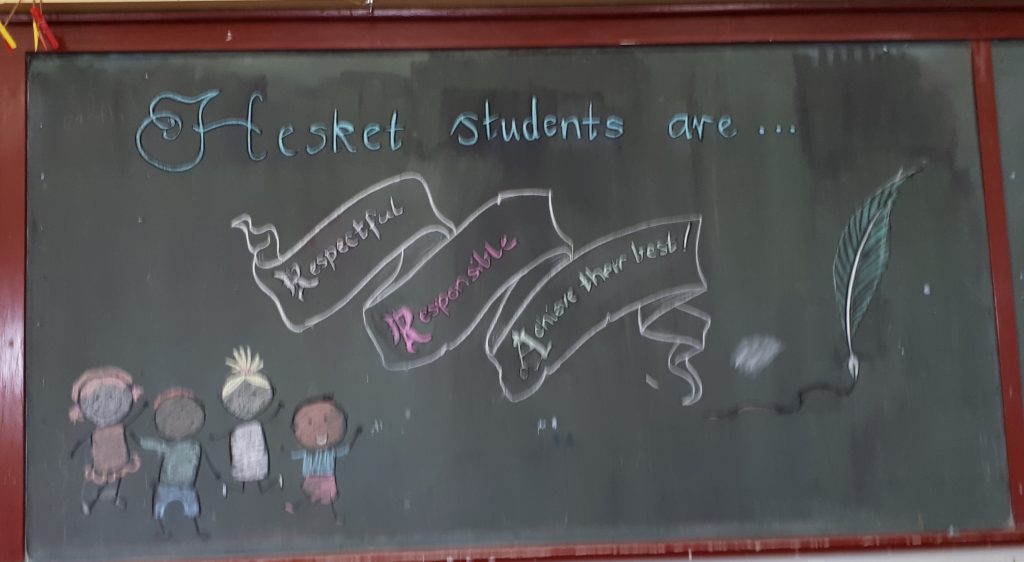 Hesket students are...
Respectful
Responsible
Achieve their best!